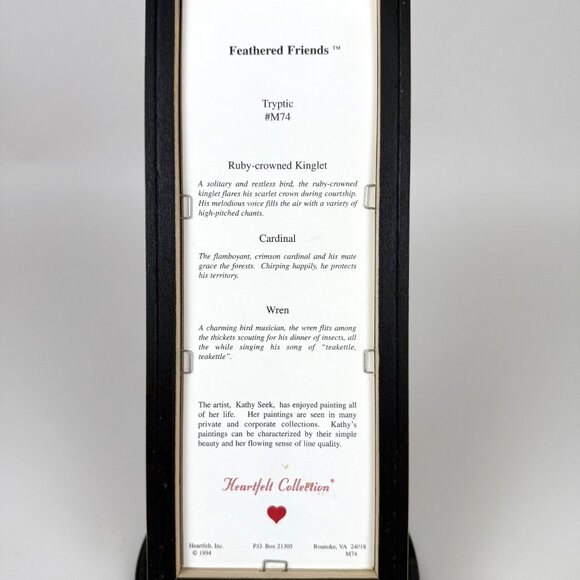 Feathered Friends ™
Tryptic
#M74
Ruby-crowned Kinglet
A solitary and restless bird, the ruby-crowned
kinglet flares his scarlet crown during courtship.
His melodious voice fills the air with a variety of
high-pitched chants.
Cardinal
The flamboyant, crimson cardinal and his mate
grace the forests. Chirping happily, he protects
his territory.
Wren
A charming bird musician, the wren flits among
the thickets scouting for his dinner of insects, all
the while singing his song of "teakettle,
teakettle".
The artist, Kathy Seek, has enjoyed painting all
of her life. Her paintings are seen in many
private and corporate collections. Kathy's
paintings can be characterized by their simple
beauty and her flowing sense of line quality.
Heartfelt Collection®
Heartfelt, Inc. P.O. Box 21305 Roanoke, VA 24018
© 1994 M74